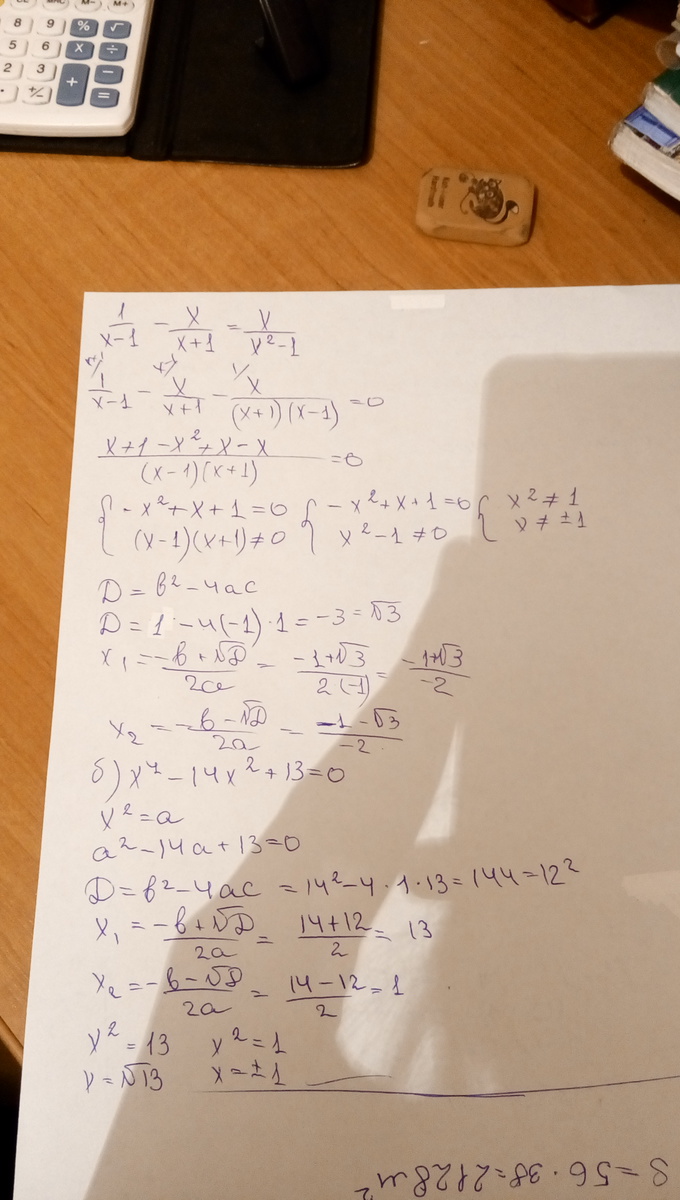 8 9 % √
5 6 X ÷
2 3 + −
+/− =
1/(x-1) - x/(x+1) = x/(x²-1)
1/(x-1) - x/(x+1) - x/((x+1)(x-1)) = 0
(x+1-x²+x-x)/((x-1)(x+1)) = 0
{ -x²+x+1=0 { -x²+x+1=0 { x²≠1
(x-1)(x+1)≠0 x²-1≠0 x≠±1
D = b²-4ac
D = 1-4(-1)·1 = -3 = √3
x₁ = (-b+√D)/2a = (-1+√3)/(2(-1)) = (-1+√3)/-2
x₂ = (-b-√D)/2a = (-1-√3)/-2
б) x⁴-14x²+13=0
x²=a
a²-14a+13=0
D=b²-4ac = 14²-4·1·13=144=12²
x₁ = (-b+√D)/2a = (14+12)/2 = 13
x₂ = (-b-√D)/2a = (14-12)/2 = 1
x²=13 x²=1
x=√13 x=±1
S=56·38=2128м²